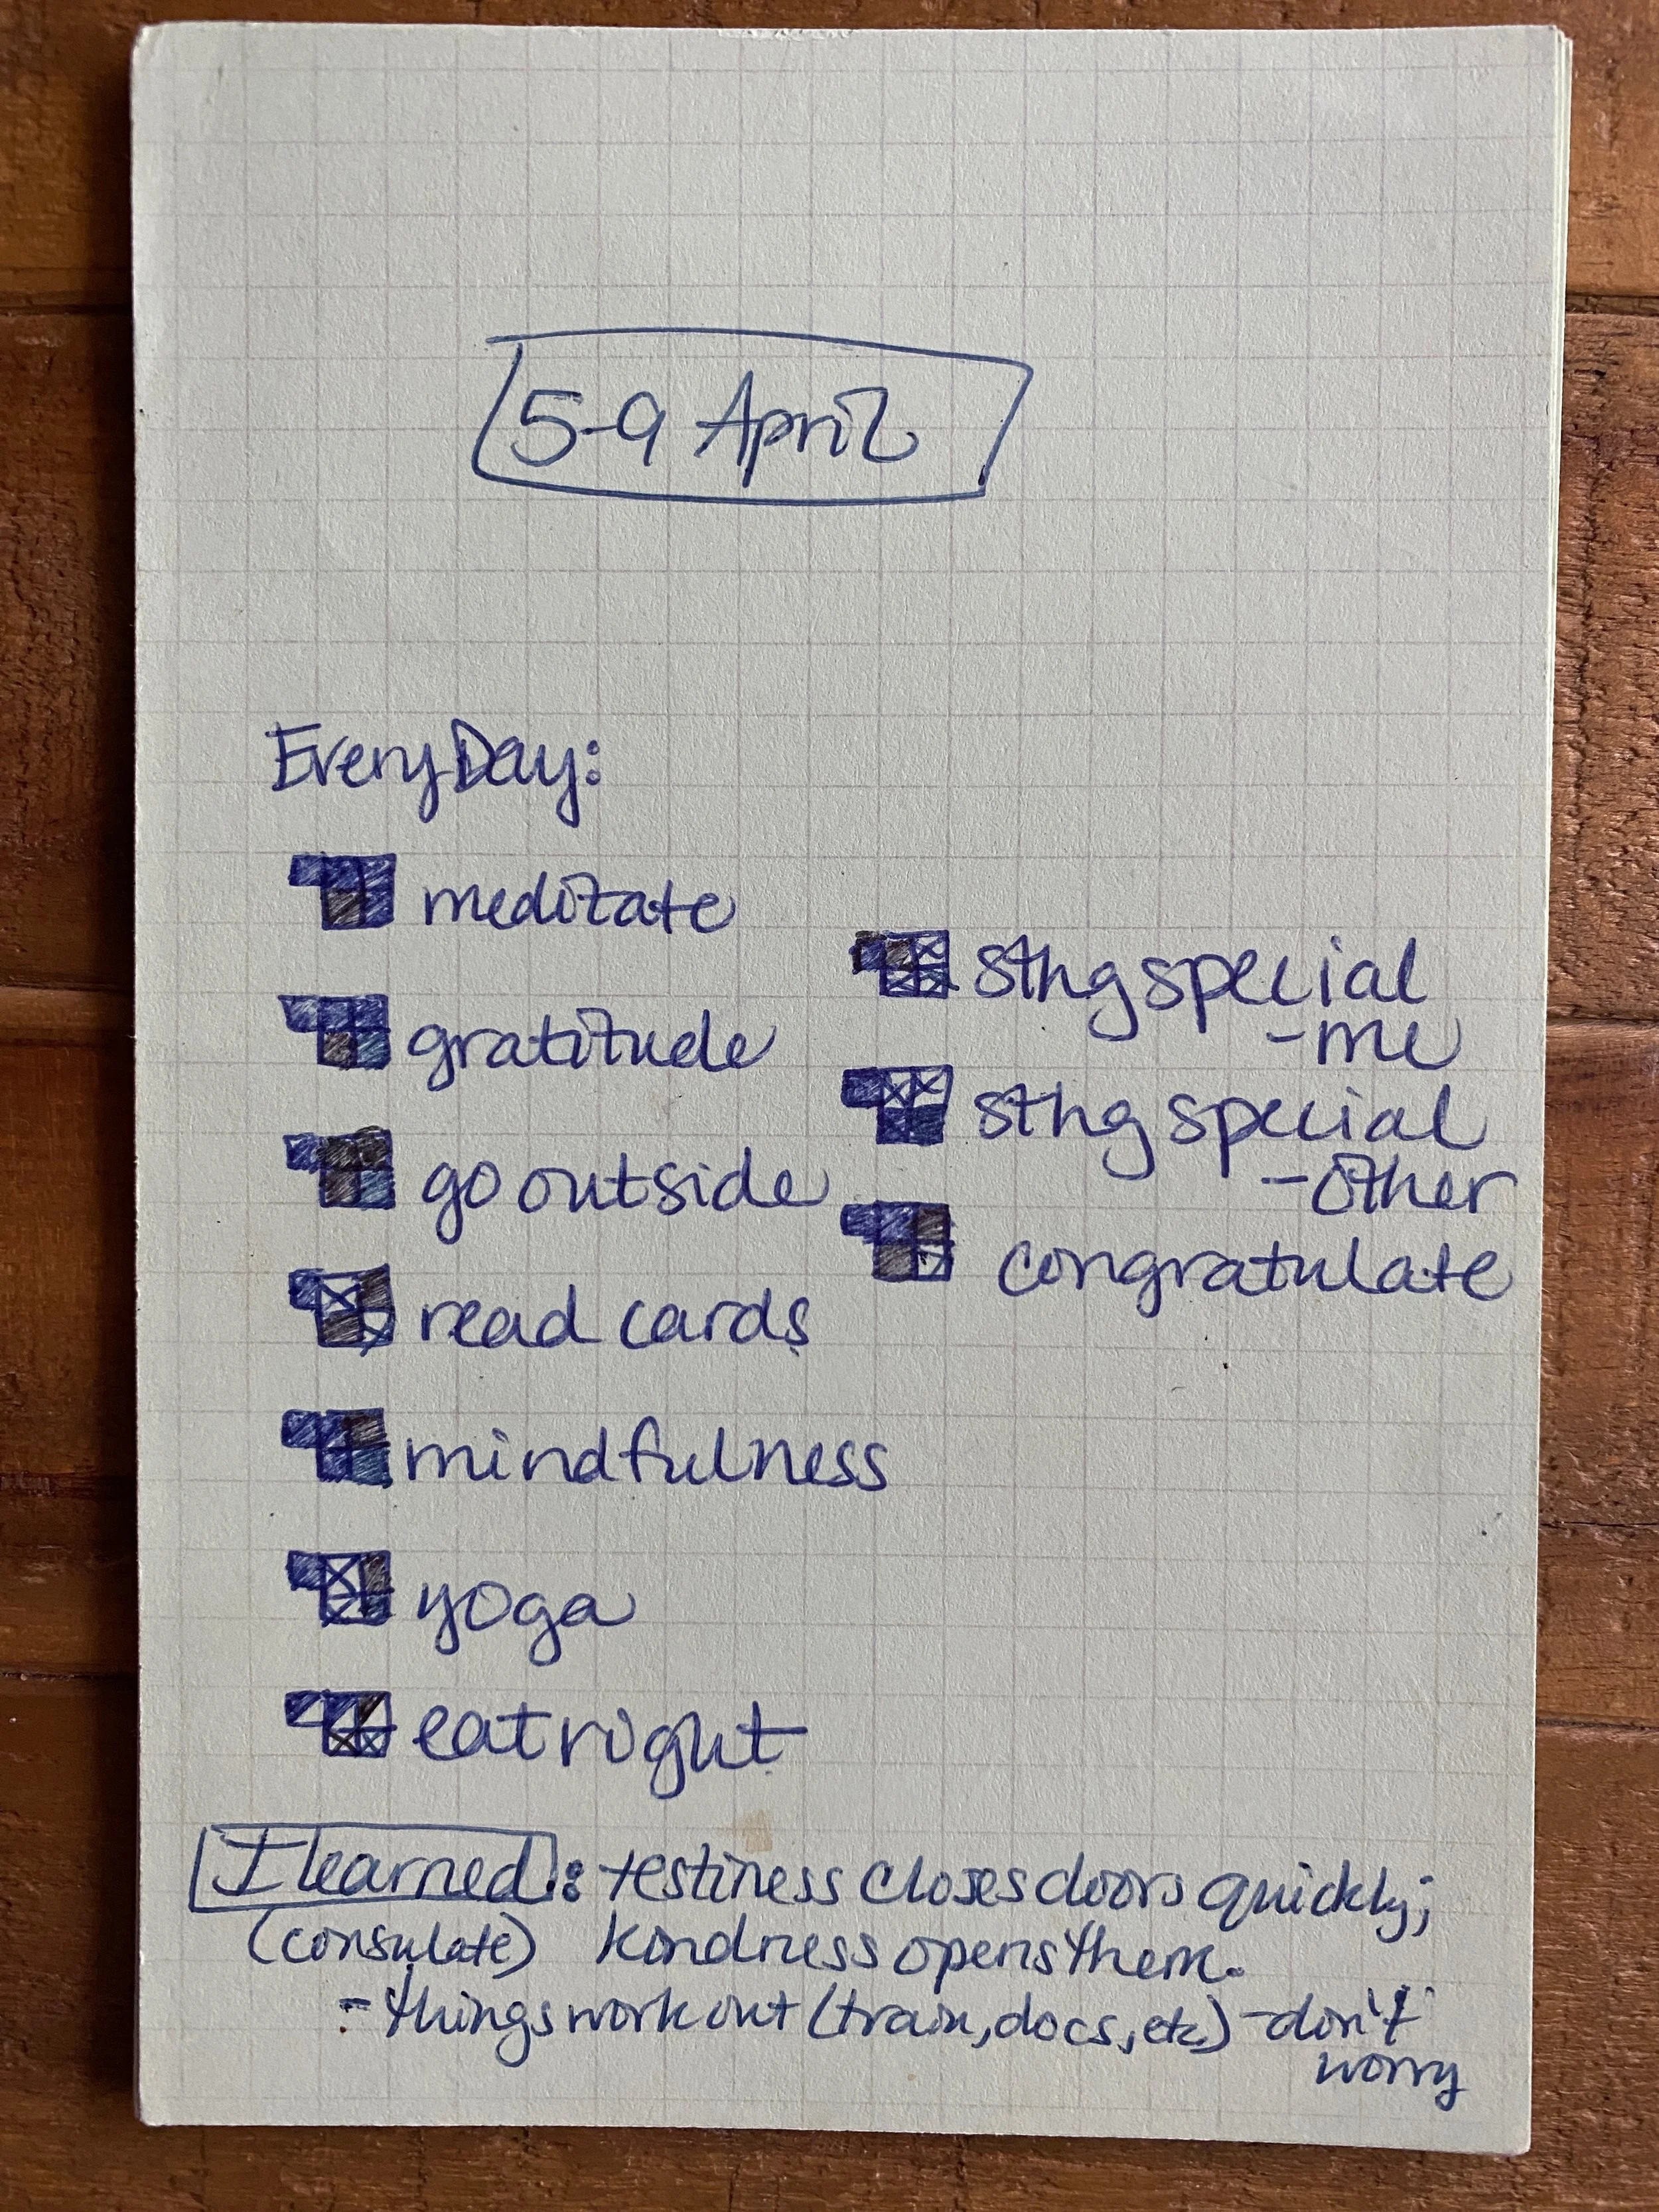 5-9 April
Every Day:
meditate
gratitude
go outside
read cards
mindfulness
yoga
eat right
sthg special
-me
sthg special
-other
congratulate
I learned: testiness closes doors quickly;
(consulate) kindness opens them.
- things work out (train, docs, etc) - don't
worry